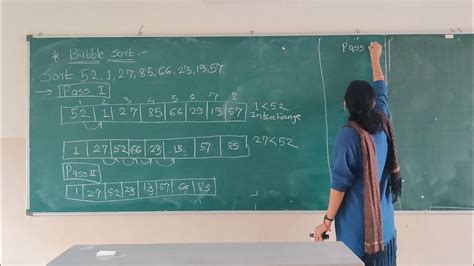 * Bubble sort :-
Sort 52, 1, 27, 85, 66, 23, 13, 57
→ Pass I
1 2 3 4 5 6 7 8
52 1 27 85 66 23 13 57
1<52
Interchange
1 27 52 66 23 13 57 85
27<52
Pass II
1 27 52 23 13 57 66 85
Pass